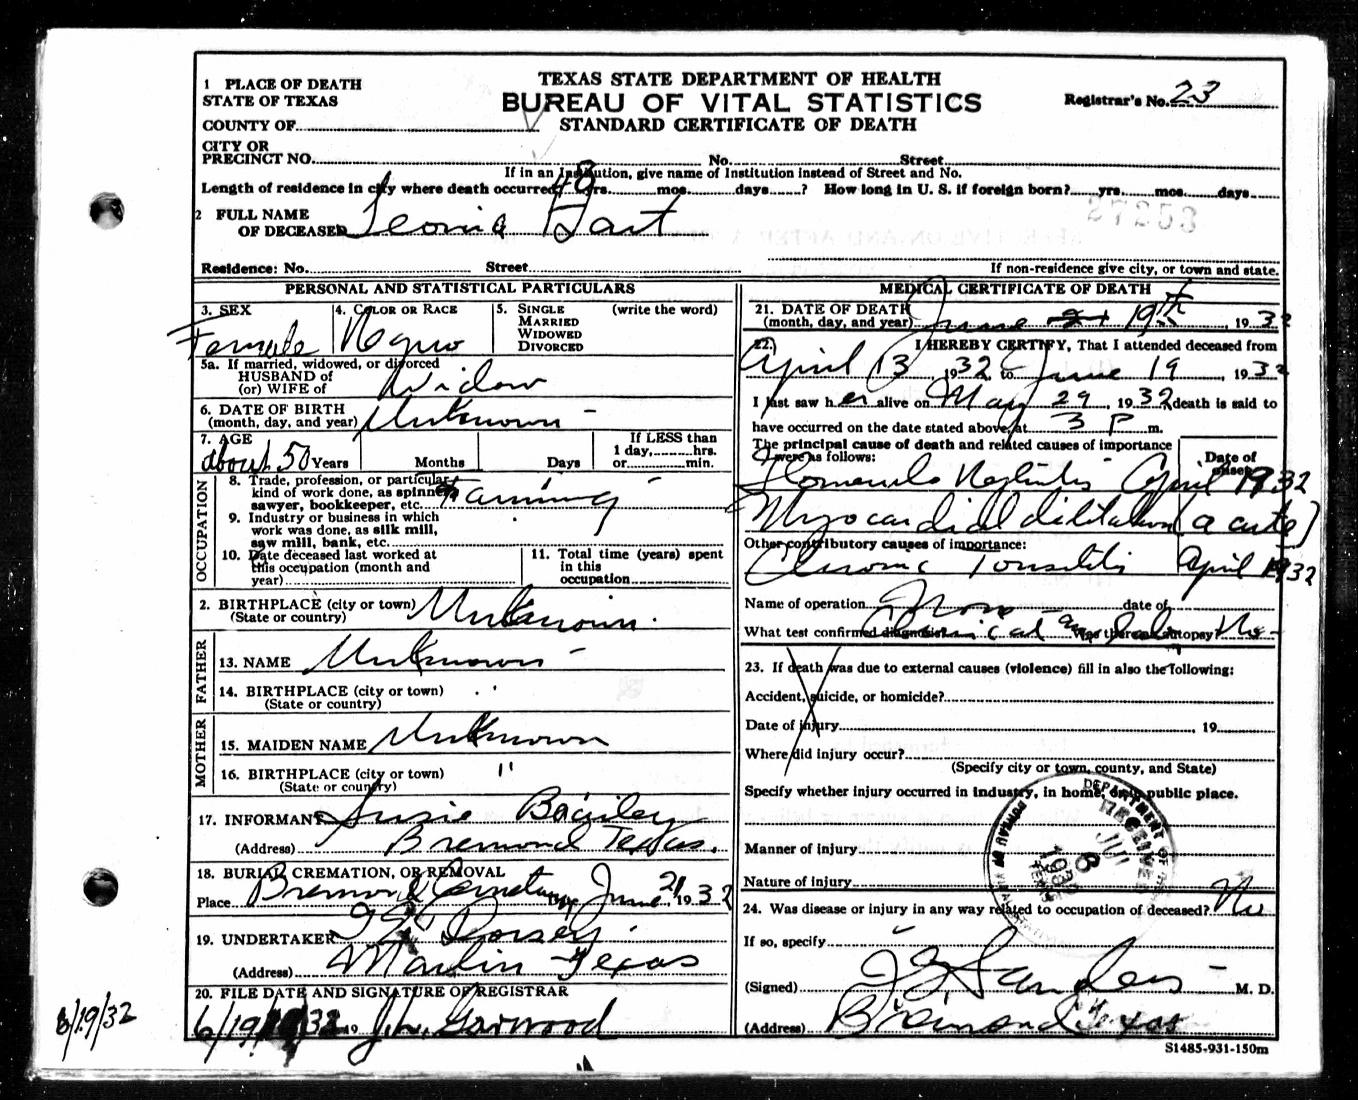 TEXAS STATE DEPARTMENT OF HEALTH
BUREAU OF VITAL STATISTICS
STANDARD CERTIFICATE OF DEATH
Registrar's No. 23
1 PLACE OF DEATH
STATE OF TEXAS
COUNTY OF
CITY OR
PRECINCT NO. No. Street
If in an Institution, give name of Institution instead of Street and No.
Length of residence in city where death occurred 48 yrs. mos. days ? How long in U. S. if foreign born? yrs. mos. days
27253
2 FULL NAME
OF DECEASED Leonia
Residence: No. Street
If non-residence give city, or town and state.
PERSONAL AND STATISTICAL PARTICULARS
3. SEX 4. COLOR OR RACE 5. SINGLE (write the word)
MARRIED
WIDOWED
DIVORCED
Female Negro
5a. If married, widowed, or divorced
HUSBAND of
(or) WIFE of Widow
6. DATE OF BIRTH
(month, day, and year) Unknown -
7. AGE If LESS than
1 day, hrs.
about 50 Years Months Days or min.
OCCUPATION
8. Trade, profession, or particular
kind of work done, as spinner,
sawyer, bookkeeper, etc. Farming
9. Industry or business in which
work was done, as silk mill,
saw mill, bank, etc.
10. Date deceased last worked at
this occupation (month and
year)
11. Total time (years) spent
in this
occupation
2. BIRTHPLACE (city or town) Unknown.
(State or country)
FATHER
13. NAME Unknown -
14. BIRTHPLACE (city or town) " 
(State or country)
MOTHER
15. MAIDEN NAME Unknown
16. BIRTHPLACE (city or town) "
(State or country)
17. INFORMANT Susie Bailey
(Address) Bremond Texas.
18. BURIAL, CREMATION, OR REMOVAL
Place Bremond Cemetery Date June 21 1932
19. UNDERTAKER Dorsey
(Address) Marlin Texas
20. FILE DATE AND SIGNATURE OF REGISTRAR
6/19/32 19 Garwood
6/19/32
MEDICAL CERTIFICATE OF DEATH
21. DATE OF DEATH
(month, day, and year) June 19th, 1932
22. I HEREBY CERTIFY, That I attended deceased from
April 13, 1932, to June 19, 1932
I last saw her alive on May 29, 1932, death is said to
have occurred on the date stated above, at 3 P m.
The principal cause of death and related causes of importance
were as follows:
Date of
onset
Nephritis - April 1932
Myocardial dilitation (acute)
Other contributory causes of importance:
Chronic Tonsilitis April 1932
Name of operation None date of
What test confirmed diagnosis? Clinical Was there an autopsy? No -
23. If death was due to external causes (violence) fill in also the following:
Accident, suicide, or homicide?
Date of injury , 19
Where did injury occur?
(Specify city or town, county, and State)
Specify whether injury occurred in industry, in home, or in public place.
Manner of injury
Nature of injury
DEPARTMENT OF
RECEIVED
JUL
8
1932
24. Was disease or injury in any way related to occupation of deceased? No
If so, specify
(Signed) Sanders - M. D.
(Address) Bremond Texas
S1485-931-150m